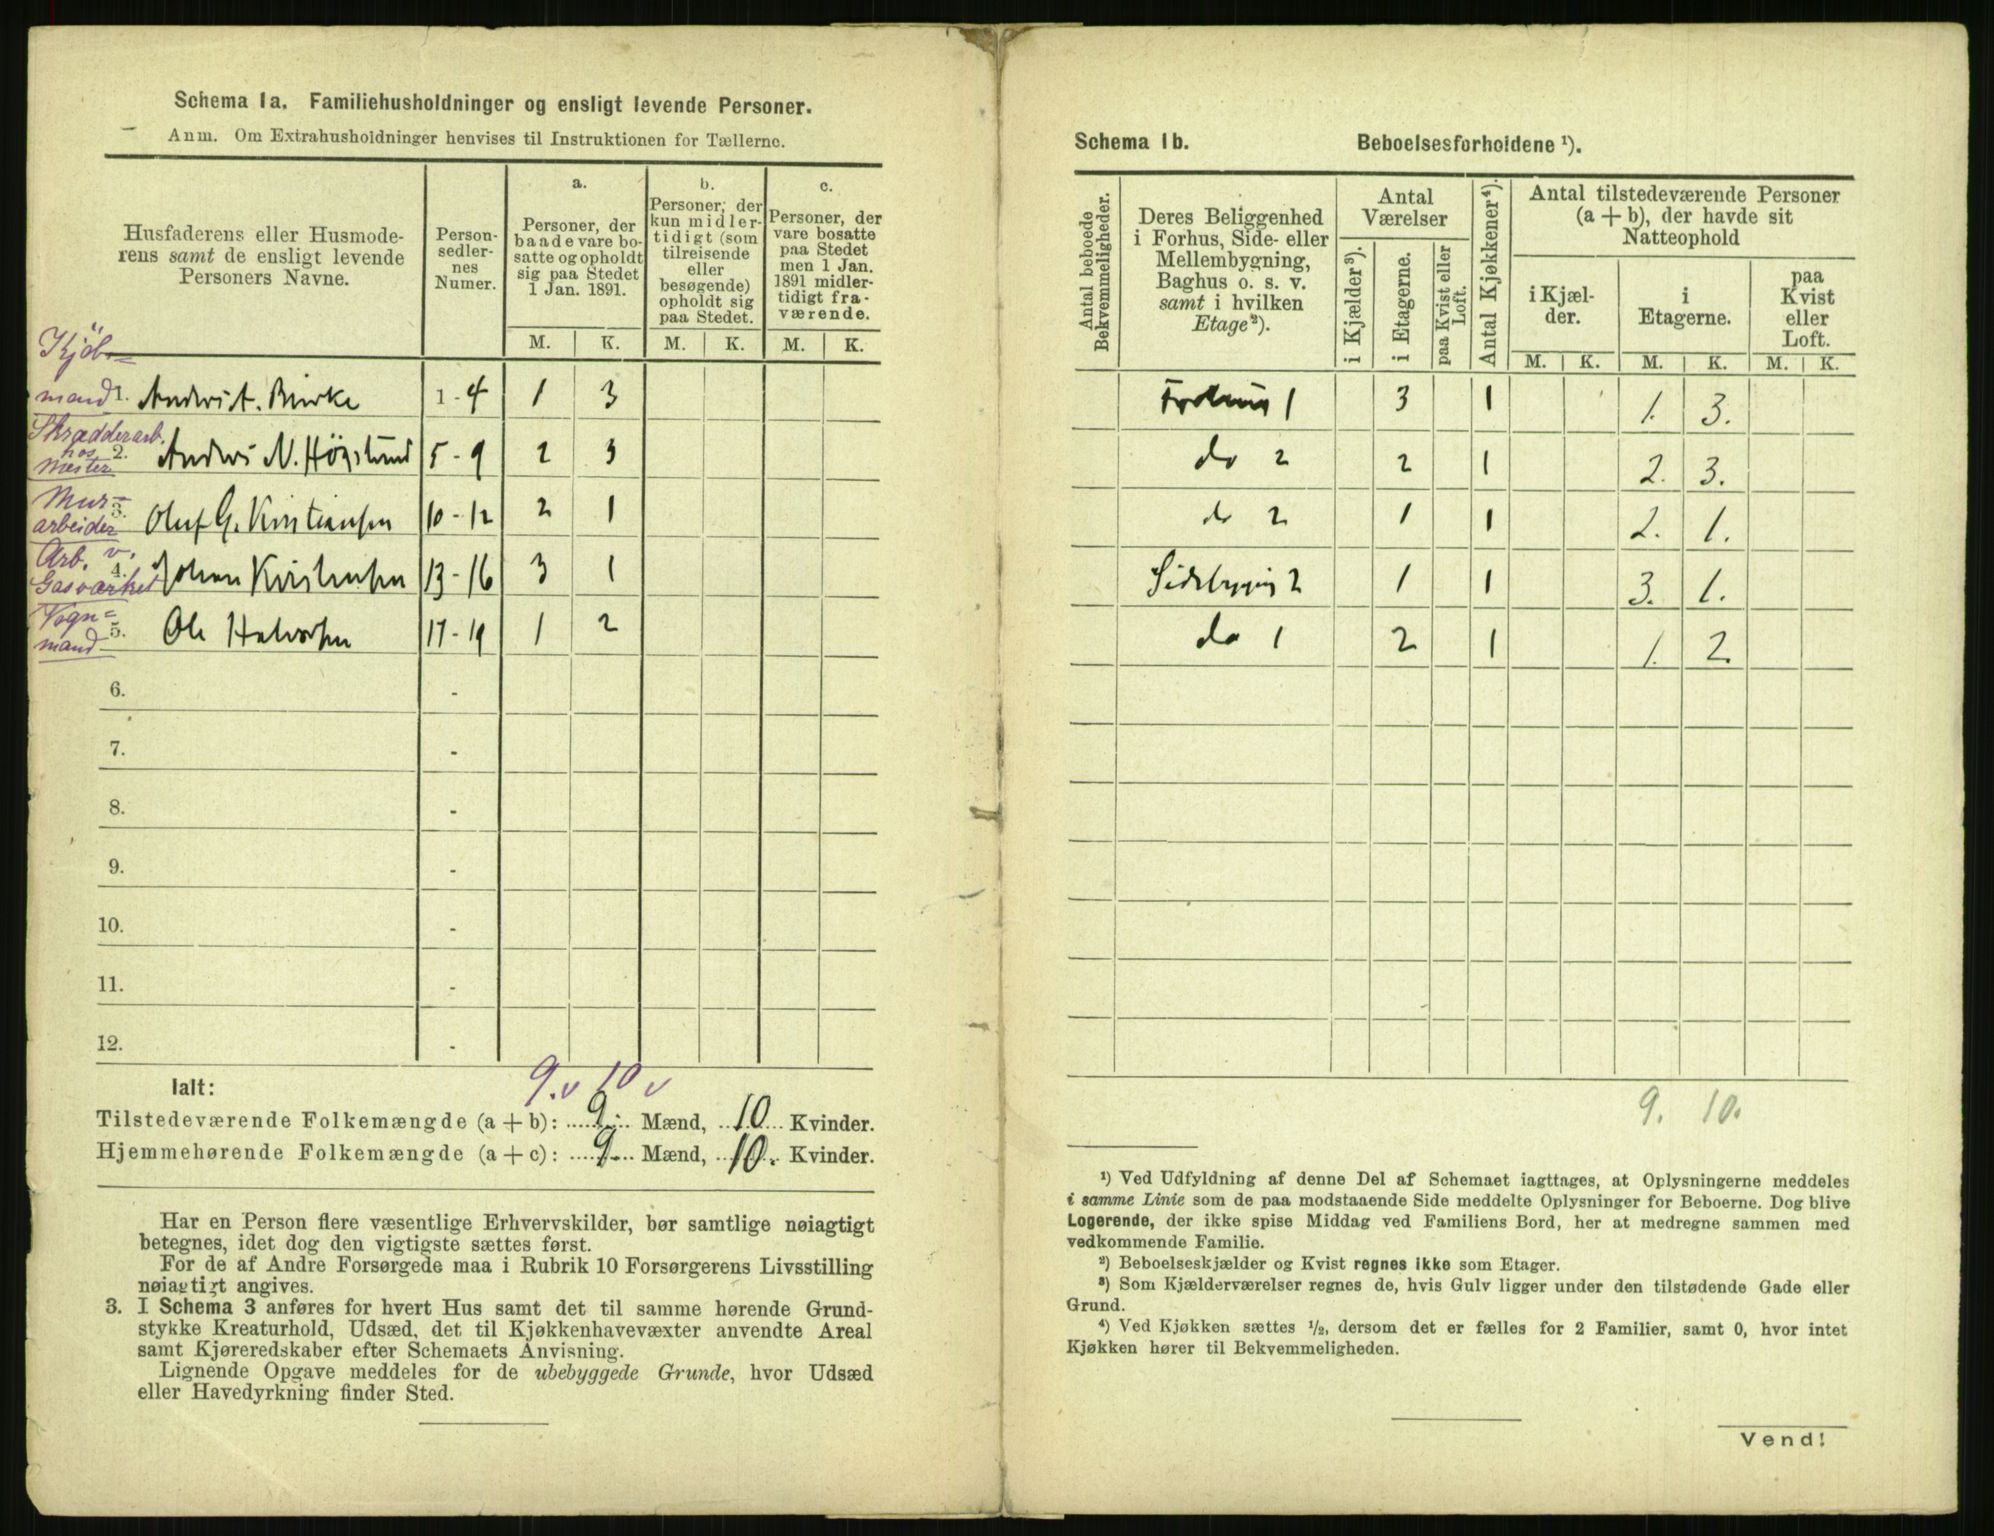 Schema 1a. Familiehusholdninger og ensligt levende Personer.
Anm. Om Extrahusholdninger henvises til Instruktionen for Tællerne.
Husfaderens eller Husmode-
rens samt de ensligt levende
Personers Navne.
Person-
sedler-
nes
Numer.
a.
Personer, der
baade vare bo-
satte og opholdt
sig paa Stedet
1 Jan. 1891.
b.
Personer, der
kun midler-
tidigt (som
tilreisende
eller
besøgende)
opholdt sig
paa Stedet.
c.
Personer, der
vare bosatte
paa Stedet
men 1 Jan.
1891 midler-
tidigt fra-
værende.
M. K. M. K. M. K.
Kjöb-
mand 1. Anders A. Burke 1 - 4 1 3
Skrædderarb.
hos
Mester 2. Anders N. Höglund 5 - 9 2 3
Mur-
arbeider 3. Oluf G. Kristiansen 10 - 12 2 1
Arb. v.
Gasværket 4. Johan Kristensen 13 - 16 3 1
Vogn-
mand 5. Ole Halvorsen 17 - 19 1 2
6. -
7. -
8. -
9. -
10. -
11. -
12. -
9. v 10 v
Ialt:
Tilstedeværende Folkemængde (a + b): 9 Mænd, 10 Kvinder.
Hjemmehørende Folkemængde (a + c): 9 Mænd, 10. Kvinder.
Har en Person flere væsentlige Erhvervskilder, bør samtlige nøiagtigt
betegnes, idet dog den vigtigste sættes først.
For de af Andre Forsørgede maa i Rubrik 10 Forsørgerens Livsstilling
nøiagtigt angives.
3. I Schema 3 anføres for hvert Hus samt det til samme hørende Grund-
stykke Kreaturhold, Udsæd, det til Kjøkkenhavevæxter anvendte Areal
samt Kjøreredskaber efter Schemaets Anvisning.
Lignende Opgave meddeles for de ubebyggede Grunde, hvor Udsæd
eller Havedyrkning finder Sted.
Schema 1b. Beboelsesforholdene ¹).
Antal beboede
Bekvemmeligheder.
Deres Beliggenhed
i Forhus, Side- eller
Mellembygning,
Baghus o. s. v.
samt i hvilken
Etage²).
Antal
Værelser
i Kjælder³).
i Etagerne.
paa Kvist eller
Loft.
Antal Kjøkkener⁴).
Antal tilstedeværende Personer
(a + b), der havde sit
Natteophold
i Kjæl-
der.
i
Etagerne.
paa
Kvist
eller
Loft.
M. K. M. K. M. K.
Forhus 1 3 1 1. 3.
do 2 2 1 2. 3.
do 2 1 1 2. 1.
Sidebygning 2 1 1 3. 1.
do 1 2 1 1. 2.
9. 10.
¹) Ved Udfyldning af denne Del af Schemaet iagttages, at Oplysningerne meddeles
i samme Linie som de paa modstaaende Side meddelte Oplysninger for Beboerne. Dog blive
Logerende, der ikke spise Middag ved Familiens Bord, her at medregne sammen med
vedkommende Familie.
²) Beboelseskjælder og Kvist regnes ikke som Etager.
³) Som Kjælderværelser regnes de, hvis Gulv ligger under den tilstødende Gade eller
Grund.
⁴) Ved Kjøkken sættes ½, dersom det er fælles for 2 Familier, samt 0, hvor intet
Kjøkken hører til Bekvemmeligheden.
Vend!